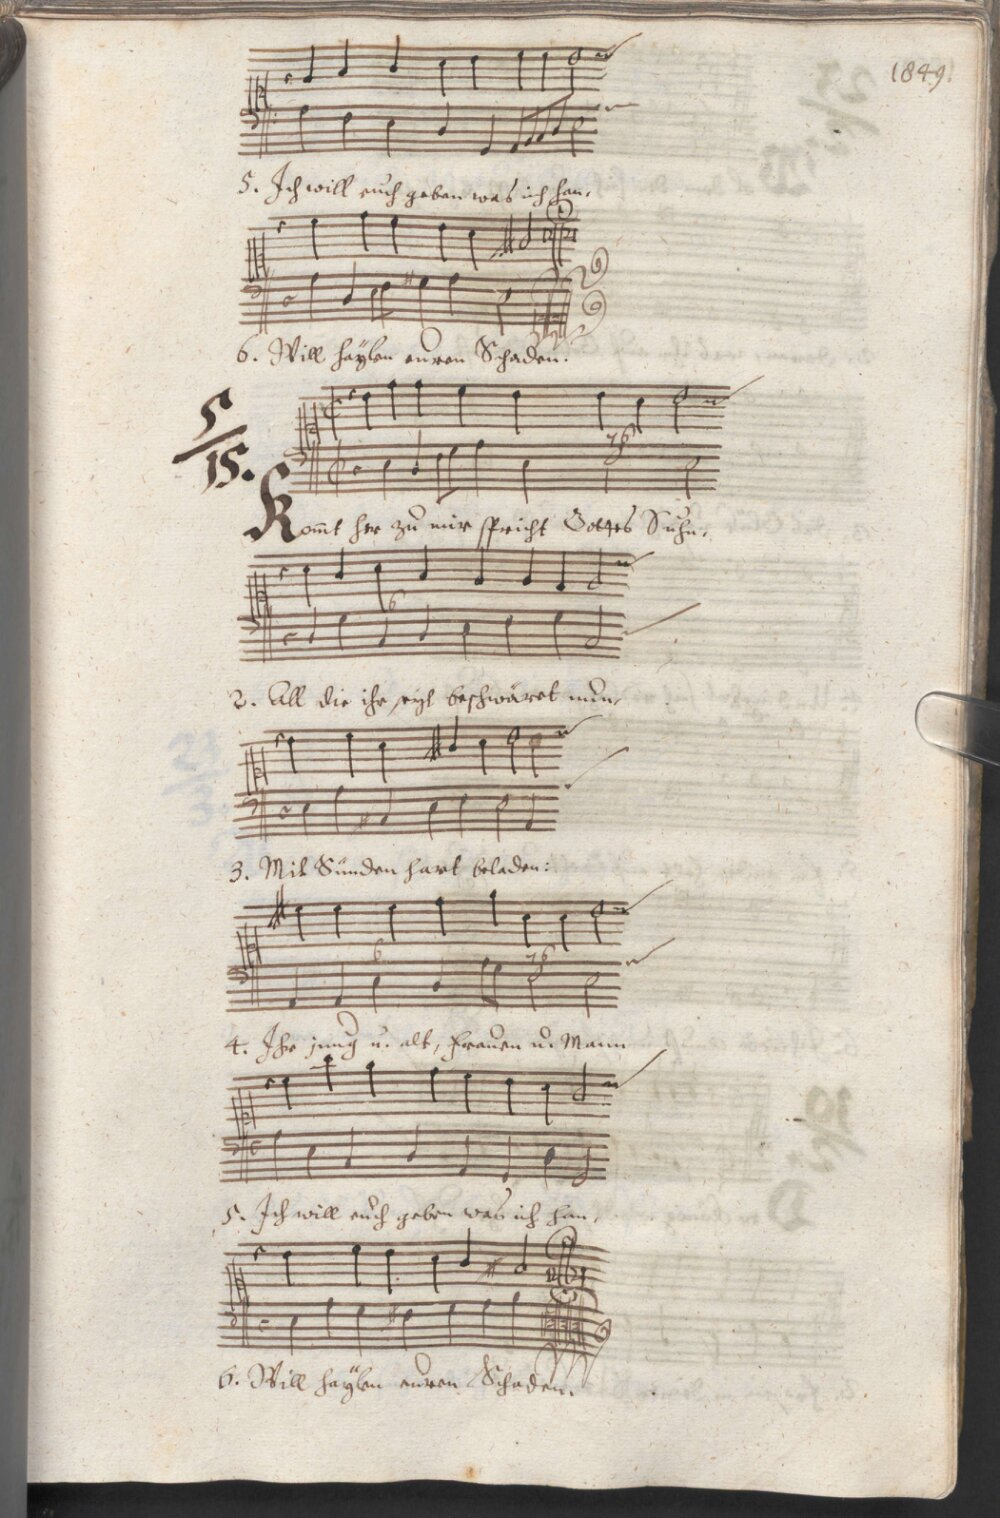 1849.
5. Ich will euch geben was ich han,
6. Will haÿlen euren Schaden.
5/15.
Kom̄t her zu mir spricht Gottes Suhn,
6
76
2. All die ihr seyt beschwäret nun,
6
3. Mit Sünden hart beladen:
6
76
4. Ihr jung u. alt, frauen u. Mann
5. Ich will euch geben was ich han,
6. Will haÿlen euren Schaden.